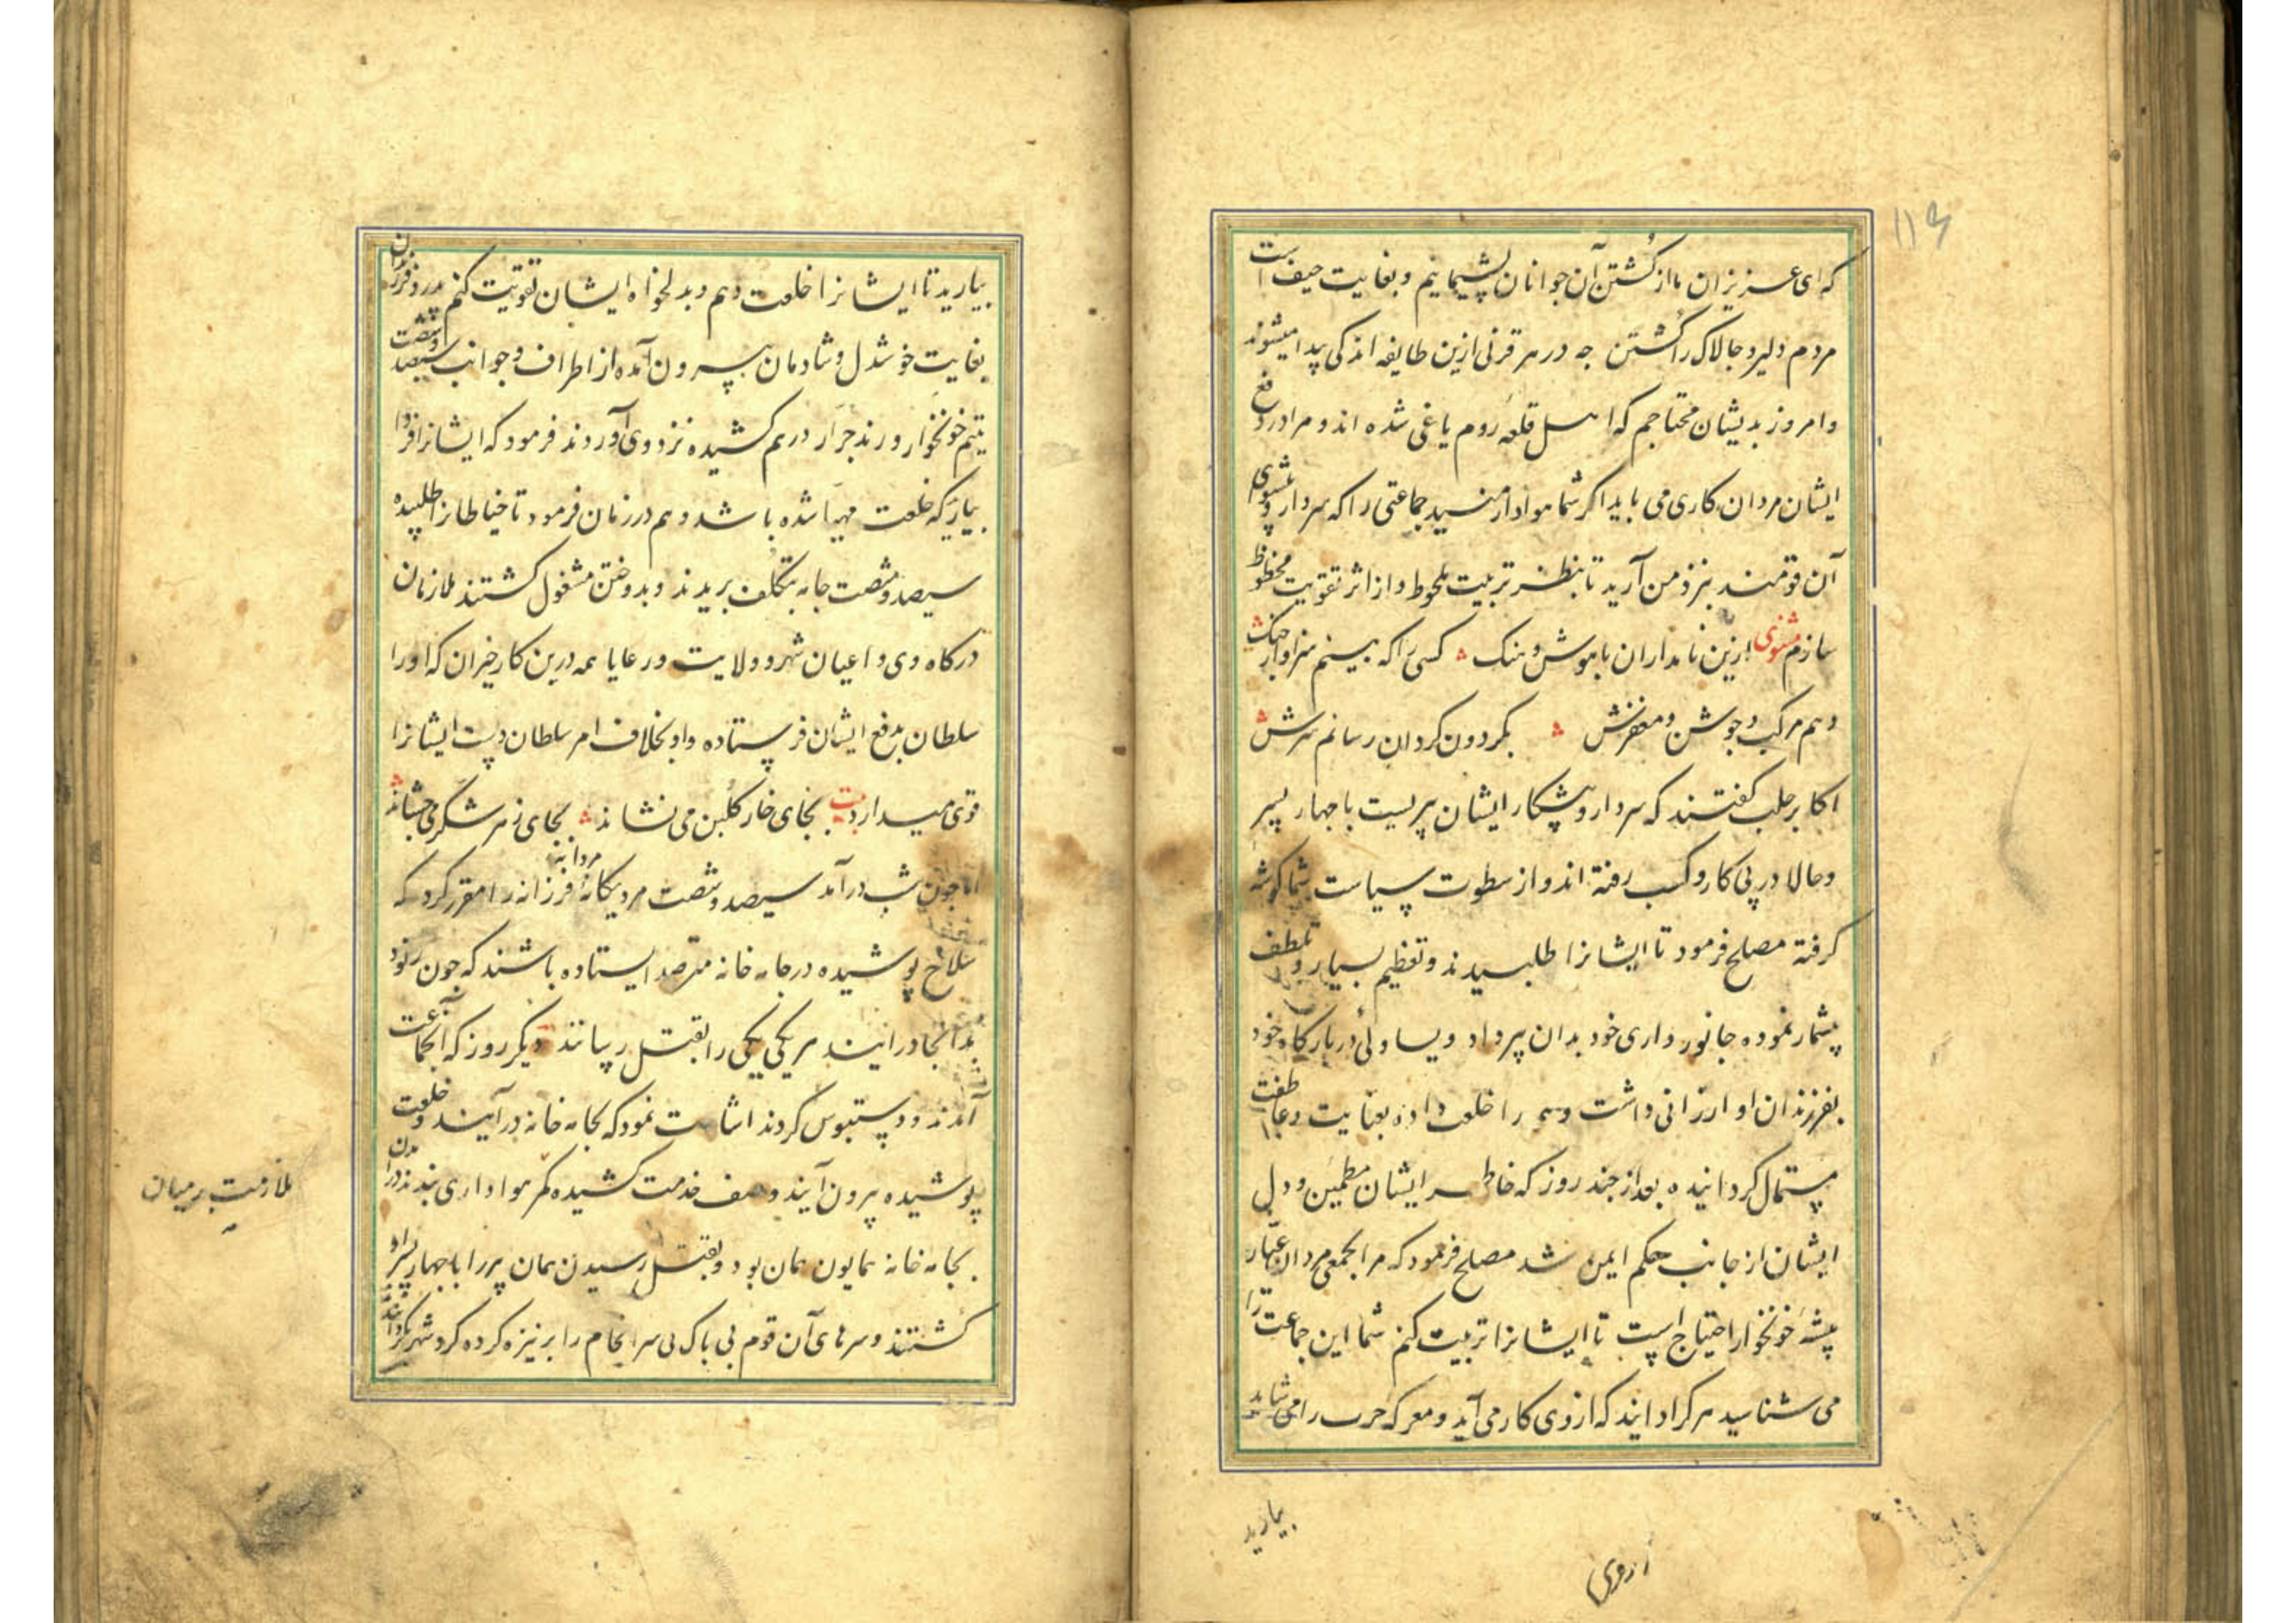 ۱۱۶
که ای عزیزان ما از کشتن آن جوانان پشیمانیم و بغایت حیف است
مردم دلیر و جالاک را کشتن جه در هر قرنی ازین طایفه اندکی پیدا میشوند
و امروز بدیشان محتاجم که اهل قلعه روم یاغی شده اند و مرا در دفع
ایشان مردان کاری می باید اکر شما هوادار منید جماعتی را که سردار و پیشوای
آن قومند بنزد من آرید تا بنظر تربیت ملحوظ و از اثر تقویت محظوظ
سازم مثنوی ازین نامداران با هوش و هنک کسی را که بینم سزاوار جنک
دهم مرکب و جوشن و مغفرش بکردون کردان رسانم سرش
اکابر حلب کفتند که سردار و پیشکار ایشان پیریست با جهار پسر
و حالا در پی کار و کسب رفته اند و از سطوت سیاست شما کوشه
کرفته مصلح فرمود تا ایشانرا طلبیدند و تعظیم بسیار و تلطف
بیشمار نموده جانورداری خود بدان پیر داد و یساولئ دربارکاه خود
بفرزندان او ارزانی داشت و همه را خلعت داده بعنایت و عاطفت
مستمال کردانیده بعد از جند روز که خاطر ایشان مطمئن و دل
ایشان از جانب حکم ایمن شد مصلح فرمود که مرا بجمعی مردان عیار
پیشه خونخوار احتیاج است تا ایشانرا تربیت کنم شما این جماعت را
می شناسید هر کرا دانید که از وی کار می آید و معرکه حرب را می شاید
بیارید
بیارید تا ایشانرا خلعت دهم و بدلخواه ایشان تقویت کنم پدر و فرزندان
بغایت خوشدل و شادمان بیرون آمده از اطراف و جوانب سیصد و شصت
یتیم خونخوار و رند جرار در هم کشیده نزد وی آوردند فرمود که ایشانرا فردا
بیار که خلعت مهیا شده باشد و هم در زمان فرمود تا خیاطانرا طلبیده
سیصد و شصت جامه بتکلف بریدند و بدوختن مشغول کشتند ملازمان
درکاه وی و اعیان شهر و ولایت و رعایا همه درین کار حیران که او را
سلطان بدفع ایشان فرستاده و او بخلاف امر سلطان دست ایشانرا
قوی میدارد بیت بجای خار کلبن می نشاند بجای زهر شکر می جشاند
اما جون شب درآمد سیصد و شصت مرد یکانه فرزانه را مقرر کرد که
مردانه
سلاح پوشیده در جامه خانه مترصد ایستاده باشند که جون رنود
بدانجا درآیند هر یکی یکی را بقتل رسانند دیکر روز که آنجماعت
آمدند و دستبوس کردند اشارت نمود که بجامه خانه درآیند و خلعت
پوشیده بیرون آیند و صف خدمت کشیده کمر هواداری بندند درآمدن
ملازمت بر میان
بجامه خانه همایون همان بود و بقتل رسیدن همان پیر را با جهار پسر او
کشتند و سرهای آن قوم بی باک بی سرانجام را بر نیزه کرده کرد شهر کردانیدند